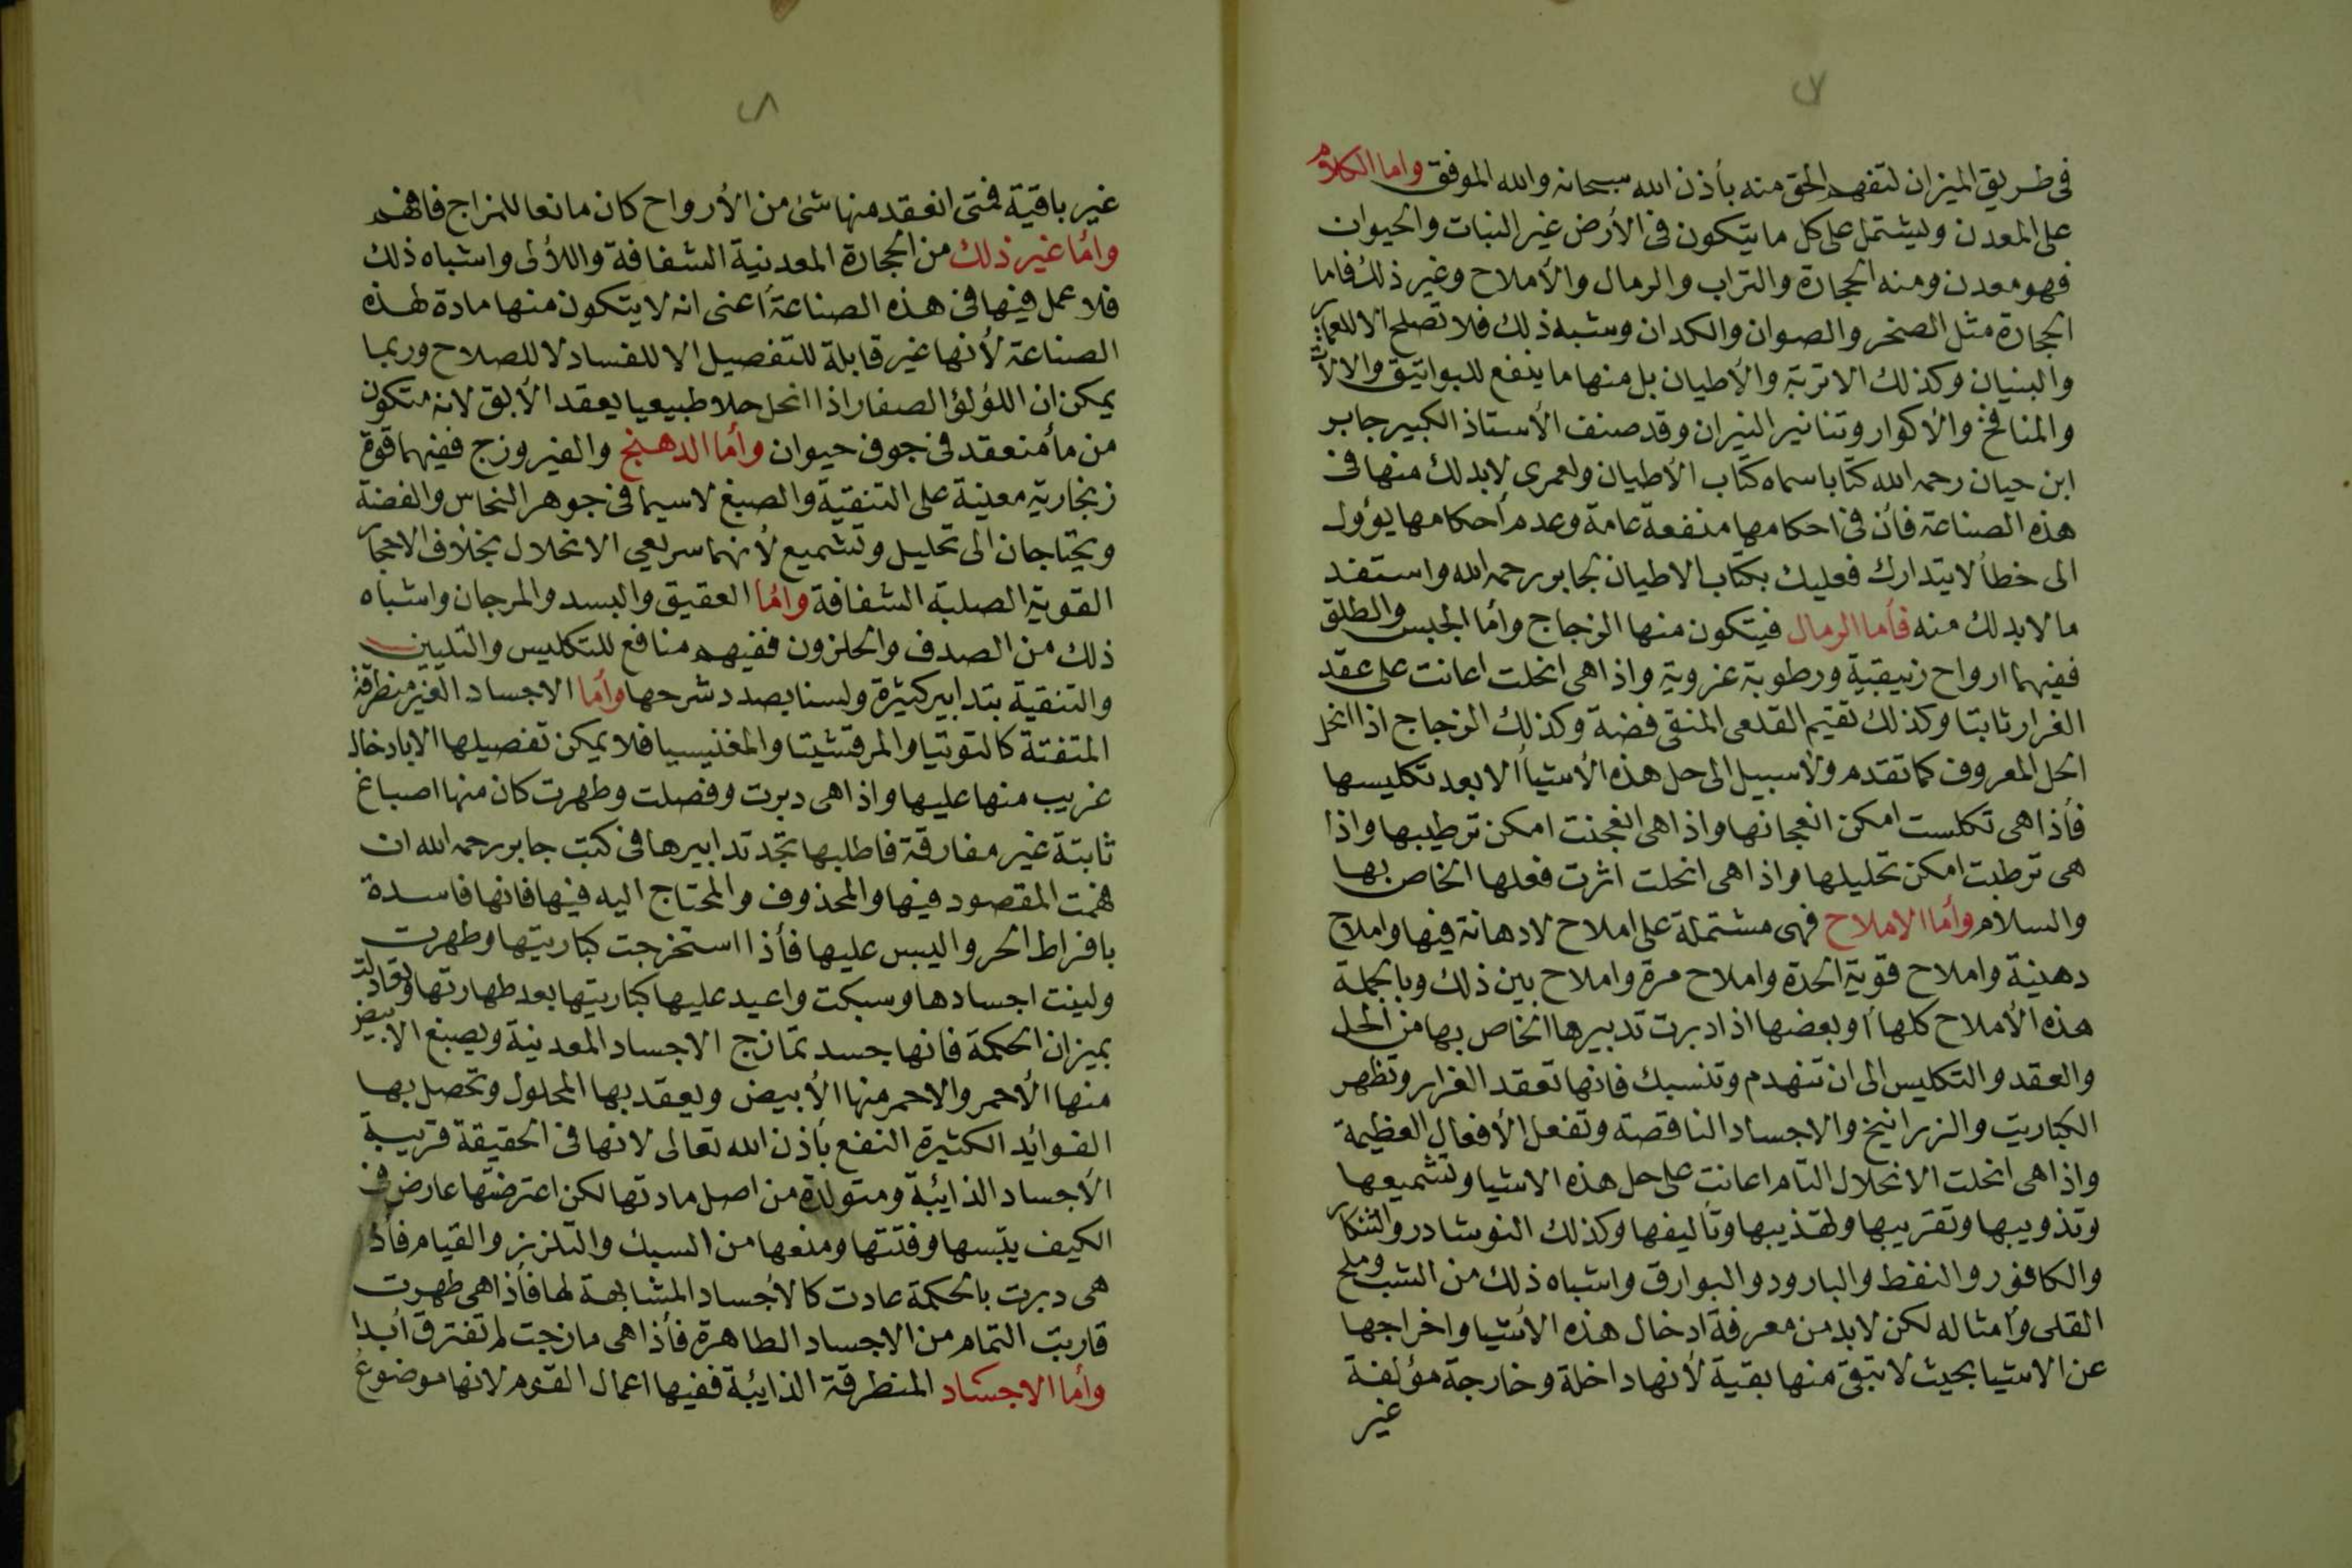 فى طريق الميزان لتفهم الحق منه بأذن الله سبحانه والله الموفق واما الكلام
على المعدن وليشتمل على كل ما يتكون فى الأرض غير النبات والحيوان
فهو معدن ومنه الحجارة والتراب والرمال والأملاح وغير ذلك فاما
الحجارة مثل الصخر والصوان والكدان وشبه ذلك فلا تصلح الا للعمائر
والبنيان وكذلك الاتربة والأطيان بل منها ما ينفع للبواتيق والالات
والمنافخ والأكوار وتنانير النيران وقد صنف الأستاذ الكبير جابر
ابن حيان رحمه الله كتابا سماه كتاب الأطيان ولعمرى لابد لك منها فى
هذه الصناعة فأن فى احكامها منفعة عامة وعدم أحكامها يؤول
الى خطأ لا يتدارك فعليك بكتاب الاطيان لجابر رحمه الله واستفد
ما لابد لك منه فأما الرمال فيتكون منها الزجاج وأما الجبس والطلق
ففيهما ارواح زيبقية ورطوبة غروية واذا هى انحلت اعانت على عقد
الفرار ثابتا وكذلك تقيم القلعى المنقى فضة وكذلك الزجاج اذا انحل
الحل المعروف كما تقدم ولا سبيل الى حل هذه الأشيا الا بعد تكليسها
فأذا هى تكلست امكن انعجانها واذا هى انعجنت امكن ترطيبها واذا
هى ترطبت امكن تحليلها واذا هى انحلت اثرت فعلها الخاص بها
والسلام وأما الاملاح فهى مشتملة على املاح لا دهانة فيها واملاح
دهنية واملاح قوية الحدة واملاح مرة واملاح بين ذلك وبالجملة
هذه الأملاح كلها أو بعضها اذا دبرت تدبيرها الخاص بها من الحل
والعقد والتكليس الى ان تنهدم وتنسبك فانها تعقد الفرار وتظهر
الكباريت والزرانيخ والاجساد الناقصة وتفعل الأفعال العظيمة
واذا هى انحلت الانحلال التام اعانت على حل هذه الاشيا وتشميعها
وتذويبها وتقريبها وتهذيبها وتأليفها وكذلك النوشادر والتنكار
والكافور والنفط والبارود والبوارق واشباه ذلك من الشب وملح
القلى وأمثاله لكن لابد من معرفة ادخال هذه الأشيا واخراجها
عن الاشيا بحيث لا تبقى منها بقية لأنها داخلة وخارجة مؤلفة
غير
غير باقية فمتى انعقد منها شئ من الأرواح كان مانعا للمزاج فافهم
وأما غير ذلك من الحجارة المعدنية الشفافة واللألى واشباه ذلك
فلا عمل فيها فى هذه الصناعة أعنى انه لا يتكون منها مادة لهذه
الصناعة لأنها غير قابلة للتفصيل الا للفساد لا للصلاح وربما
يمكن ان اللؤلؤ الصغار اذا انحل حلا طبيعيا يعقد الأبق لانه متكون
من مأ منعقد فى جوف حيوان وأما الدهنج والفيروزج ففيهما قوة
زنجارية معينة على التنقية والصبغ لا سيما فى جوهر النحاس والفضة
ويحتاجان الى تحليل وتشميع لأنهما سريعى الانحلال بخلاف الاحجار
القوية الصلبة الشفافة وأما العقيق والبسد والمرجان واشباه
ذلك من الصدف والحلزون ففيهم منافع للتكليس والتليين
والتنقية بتدابير كثيرة ولسنا بصدد شرحها وأما الاجساد الغير منطرقة
المتفتة كالتوتيا والمرقشيتا والمغنيسيا فلا يمكن تفصيلها الا بادخال
غريب منها عليها واذا هى دبرت وفصلت وطهرت كان منها اصباغ
ثابتة غير مفارقة فاطلبها تجد تدابيرها فى كتب جابر رحمه الله ان
فهمت المقصود فيها والمحذوف والمحتاج اليه فيها فانها فاسدة
بافراط الحر واليبس عليها فأذا استخرجت كباريتها وطهرت
ولينت اجسادها وسبكت واعيد عليها كباريتها بعد طهارتها وتعادلت
بميزان الحكمة فانها جسد تمازج الاجساد المعدنية ويصبغ الابيض
منها الأحمر والاحمر منها الأبيض ويعقد بها المحلول وتحصل بها
الفوائد الكثيرة النفع بأذن الله تعالى لانها فى الحقيقة قريبة
الأجساد الذايبة ومتولدة من اصل مادتها لكن اعترضتها عارض فى
الكيف يبسها وفتتها ومنعها من السبك والتلزيز والقيام فأذا
هى دبرت بالحكمة عادت كالأجساد المشابهة لها فأذا هى طهرت
قاربت التمام من الاجساد الطاهرة فأذا هى مازجت لم تفترق أبدا
وأما الاجساد المنطرقة الذايبة ففيها اعمال القوم لانها موضوع